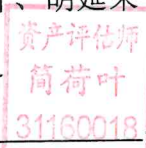 胡延荣
资产评估师
简荷叶
31160018